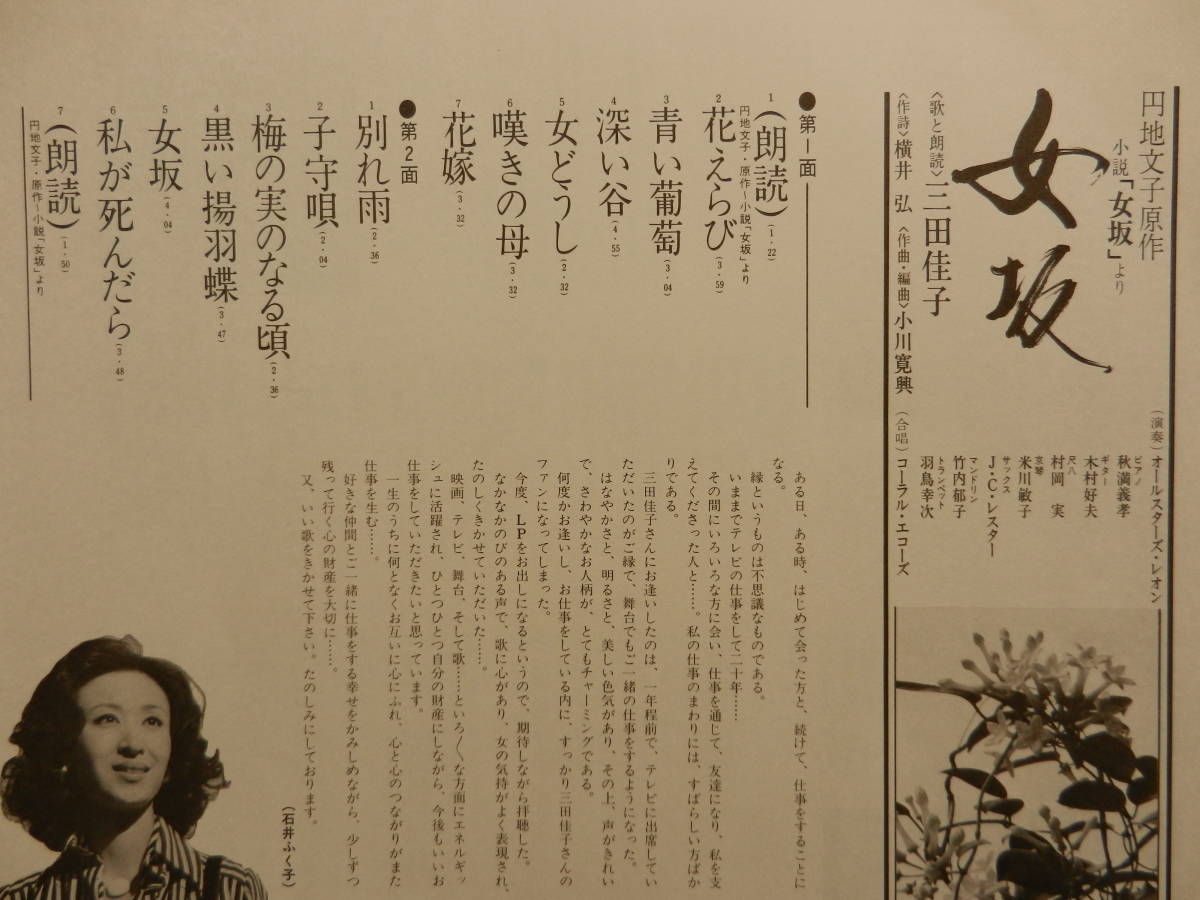 円地文子原作
小説「女坂」より
女坂
〈歌と朗読〉三田佳子
〈作詩〉横井 弘 〈作曲・編曲〉小川寛興
(演奏)オールスターズ・レオン
ピアノ
秋満義孝
ギター
木村好夫
尺八
村岡 実
京琴
米川敏子
サックス
J・C・レスター
マンドリン
竹内郁子
トランペット
羽鳥幸次
(合唱)コーラル・エコーズ
●第1面
1(朗読)(1・22)
円地文子・原作~小説「女坂」より
2花えらび(3・59)
3青い葡萄(3・04)
4深い谷(4・55)
5女どうし(2・32)
6嘆きの母(3・32)
7花嫁(3・32)
●第2面
1別れ雨(2・36)
2子守唄(2・04)
3梅の実のなる頃(2・36)
4黒い揚羽蝶(3・47)
5女坂(4・04)
6私が死んだら(3・48)
7(朗読)(1・50)
円地文子・原作~小説「女坂」より
ある日、ある時、はじめて会った方と、続けて、仕事をすることに
なる。
縁というものは不思議なものである。
いままでテレビの仕事をして二十年……
その間にいろいろな方に会い、仕事を通じて、友達になり、私を支
えてくださった人と……。私の仕事のまわりには、すばらしい方ばか
りである。
三田佳子さんにお逢いしたのは、一年程前で、テレビに出席してい
ただいたのがご縁で、舞台でもご一緒の仕事をするようになった。
はなやかさと、明るさと、美しい色気があり、その上、声がきれい
で、さわやかなお人柄が、とてもチャーミングである。
何度かお逢いし、お仕事をしている内に、すっかり三田佳子さんの
ファンになってしまった。
今度、LPをお出しになるというので、期待しながら拝聴した。
なかなかのびのある声で、歌に心があり、女の気持がよく表現され、
たのしくきかせていただいた……。
映画、テレビ、舞台、そして歌……といろ〳〵な方面にエネルギッ
シュに活躍され、ひとつひとつ自分の財産にしながら、今後もいいお
仕事をしていただきたいと思っています。
一生のうちに何となくお互いに心にふれ、心と心のつながりがまた
仕事を生む……。
好きな仲間とご一緒に仕事をする幸せをかみしめながら、少しずつ
残って行く心の財産を大切に……。
又、いい歌をきかせて下さい。たのしみにしております。
(石井ふく子)